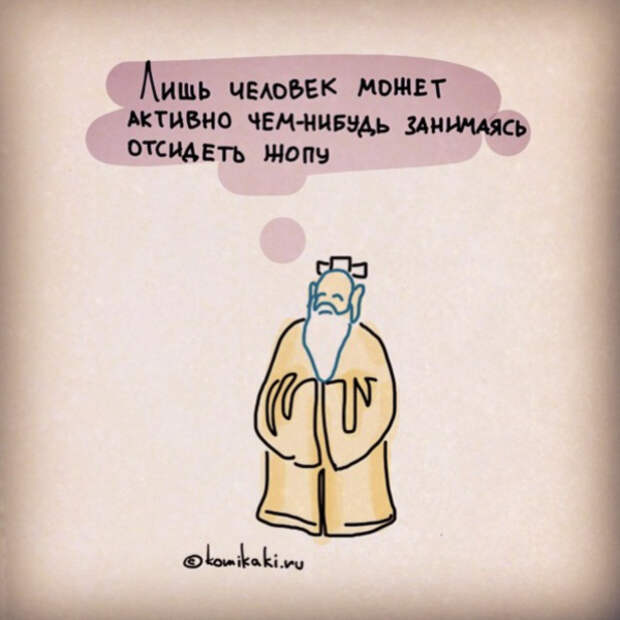 Лишь человек может
активно чем-нибудь занимаясь
отсидеть жопу
©komikaki.ru